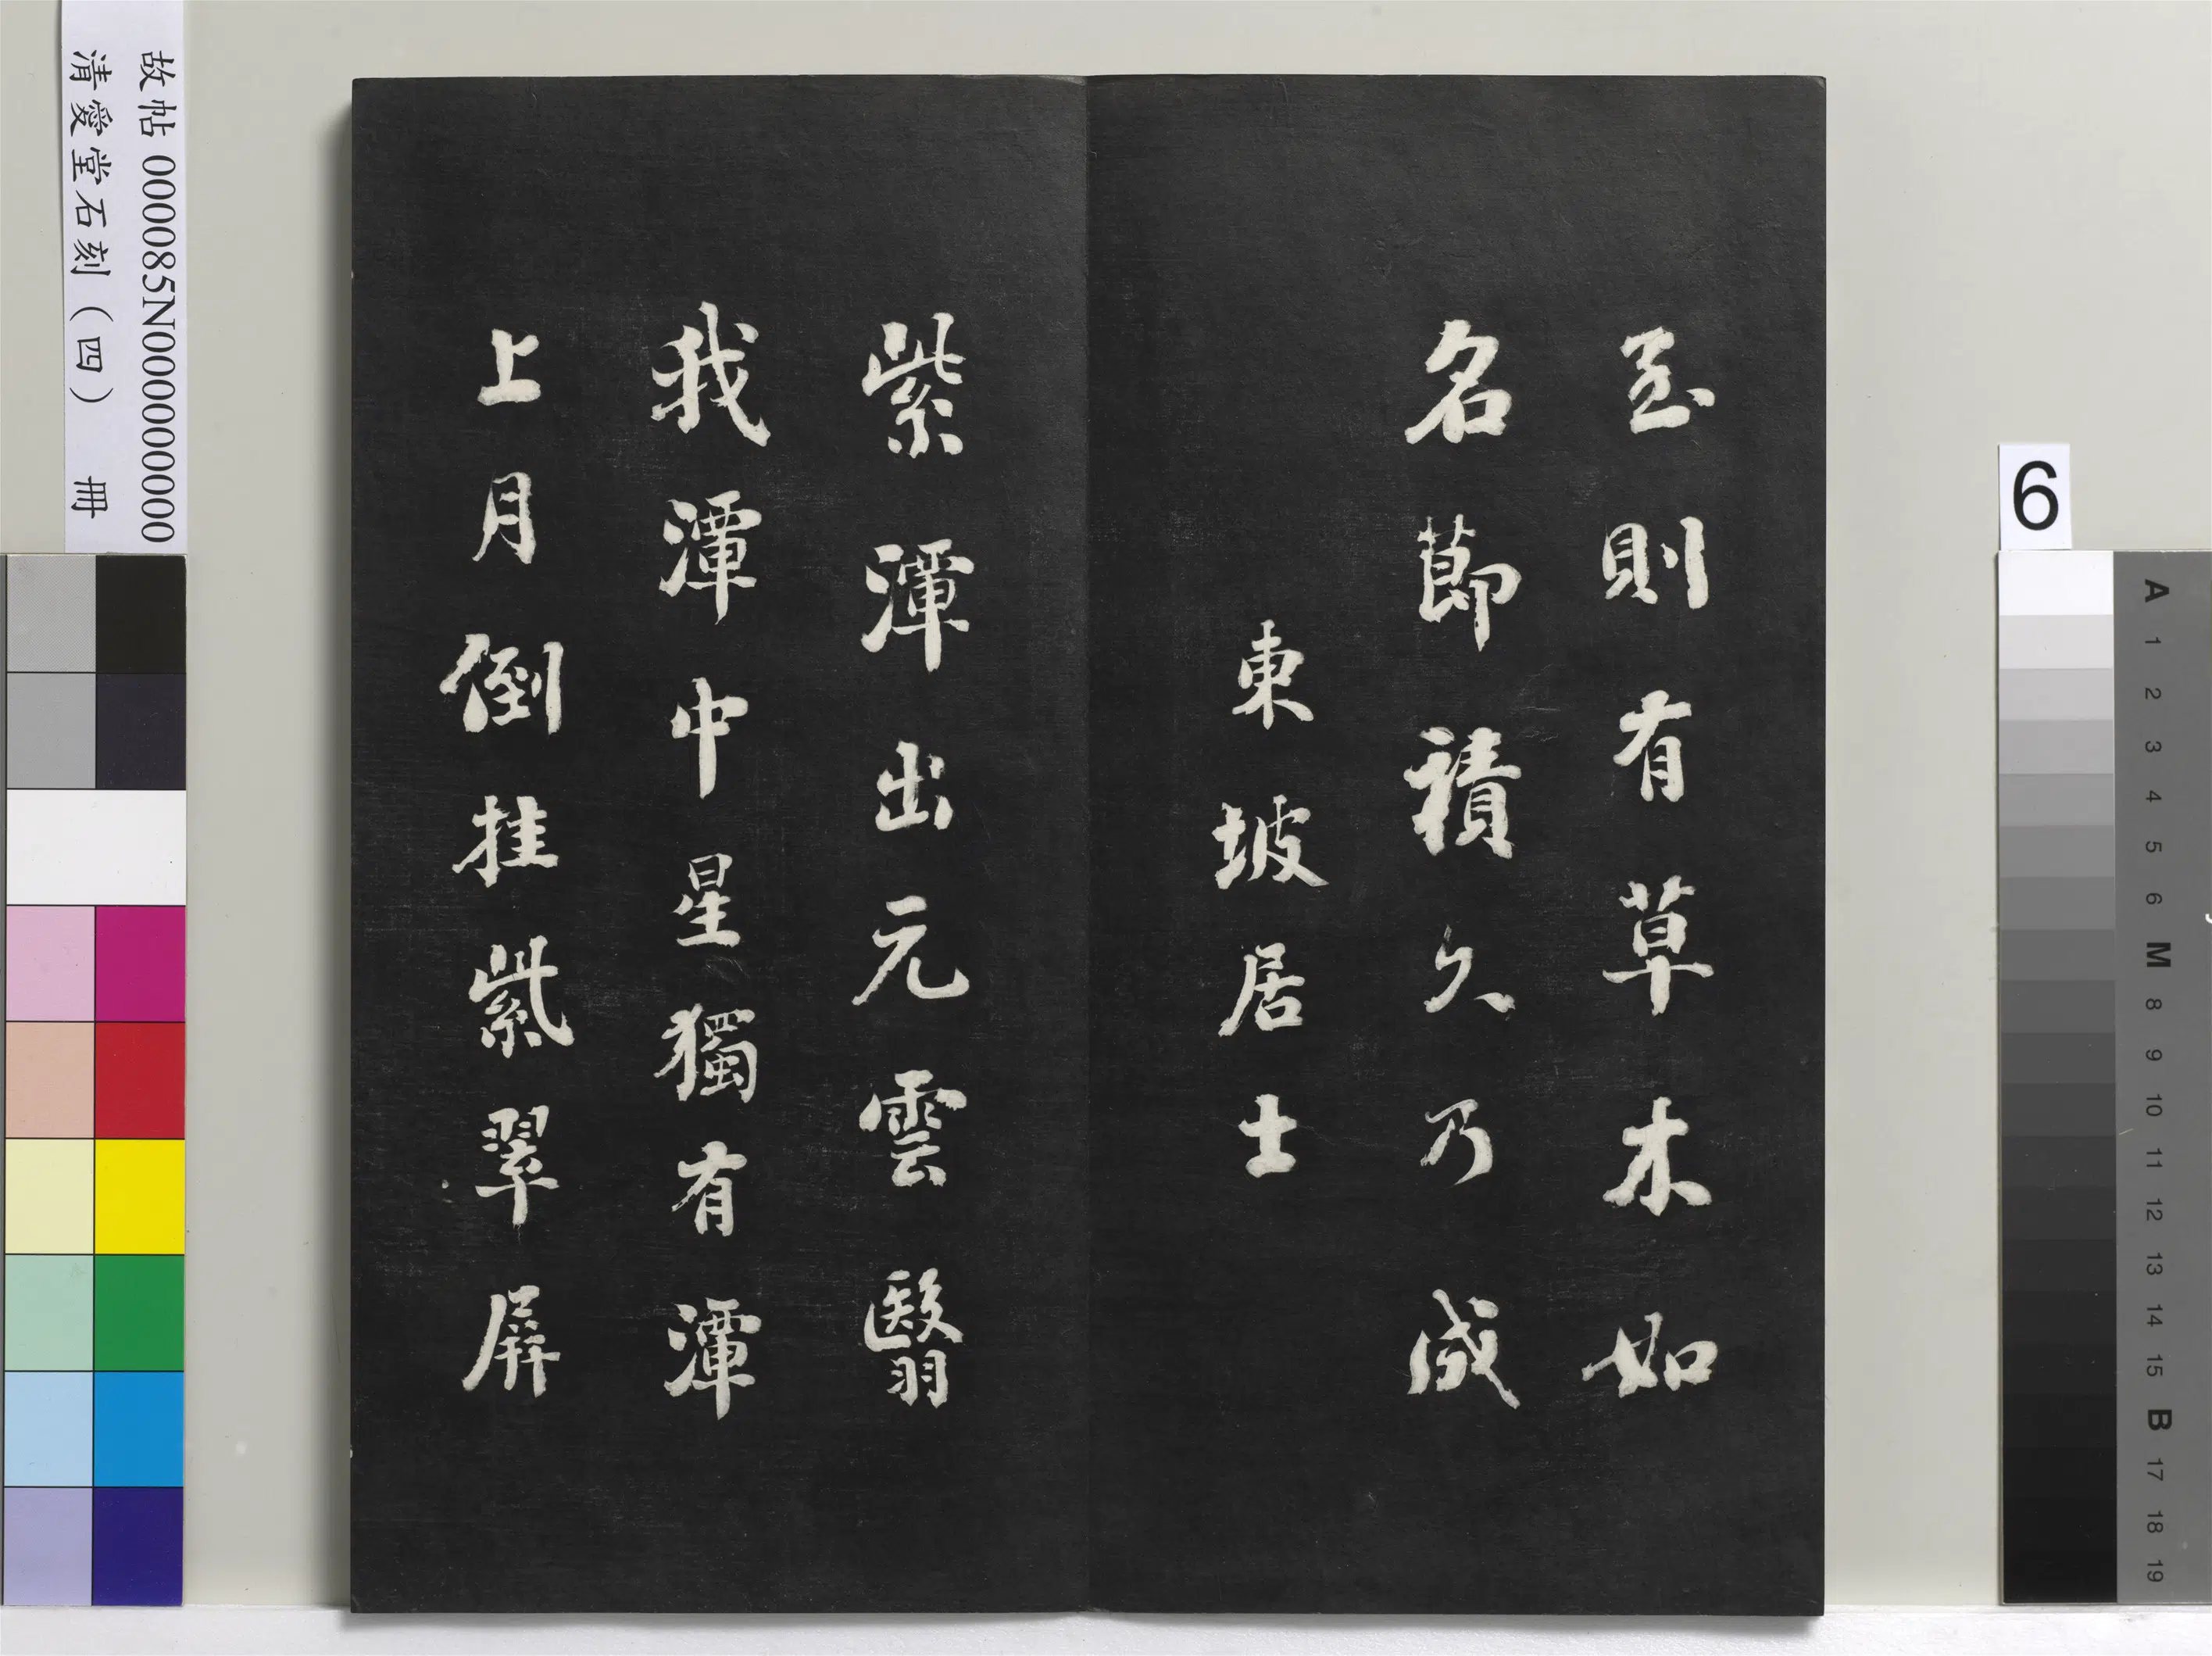 至則有草木如
名節積久乃成
東坡居士
紫潭出元雲翳
我潭中星獨有潭
上月倒挂紫翠屏
故帖 000085N000000000
清愛堂石刻(四) 冊
6
A 1 2 3 4 5 6 M 8 9 10 11 12 13 14 15 B 17 18 19